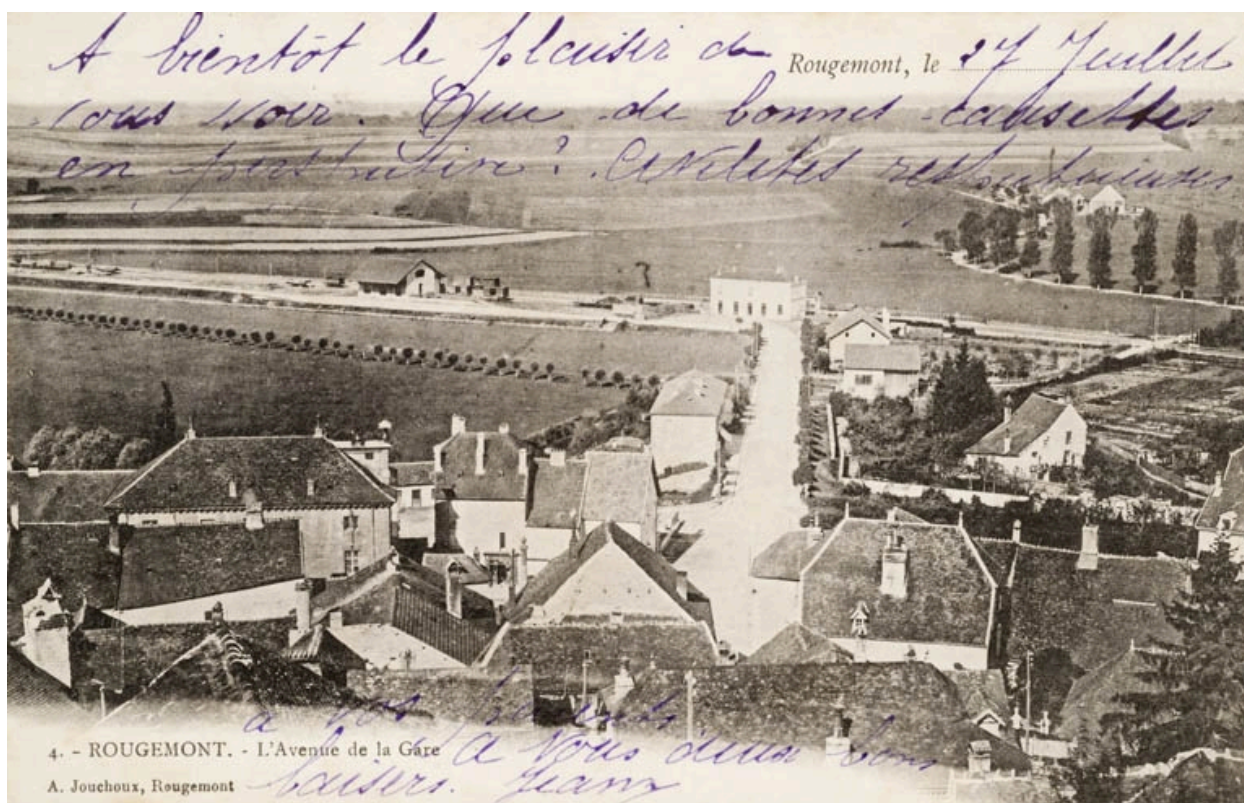 A bientôt le plaisir de
Rougemont, le 27 Juillet
vous voir. Que de bonnes causettes
en perspective ! Civilités respectueuses
à vos parents
et à vous deux bons
baisers. Jeanne
4. - ROUGEMONT. - L'Avenue de la Gare
A. Jouchoux, Rougemont